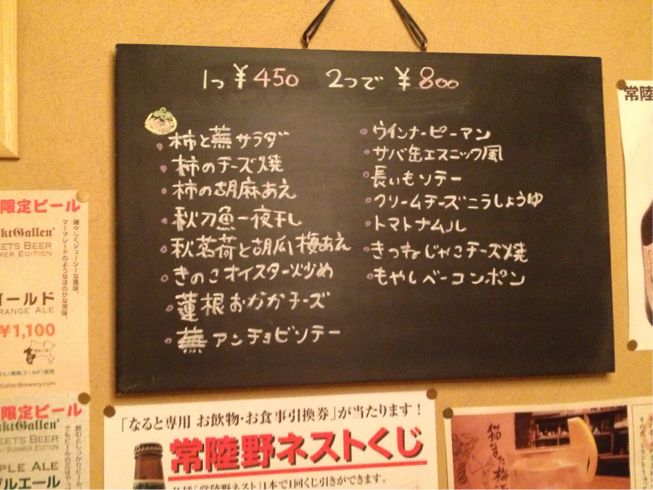 1つ ¥450 2つで ¥800
柿と蕪サラダ
柿のチーズ焼
柿の胡麻あえ
秋刀魚一夜干し
秋茗荷と胡瓜梅あえ
きのこオイスター炒め
蓮根おかかチーズ
蕪アンチョビソテー
ウインナーピーマン
サバ缶エスニック風
長いもソテー
クリームチーズニラしょうゆ
トマトナムル
きつねじゃこチーズ焼
もやしベーコンポン
限定ビール
ktGallen'
EETS BEER
ER EDITION
瑞々しくジューシーな風味、
マーマレードのようなほのかな苦味。
ゴールド
RANGE ALE
¥1,100
GallenBrewery.com
限定ビール
ktGallen'
EETS BEER
SUMMER EDITION
PLE ALE
プルエール
「なると専用 お飲物・お食事引換券」が当たります!
常陸野ネストくじ
「常陸野ネスト」1本で1回くじ引きができます。
常陸